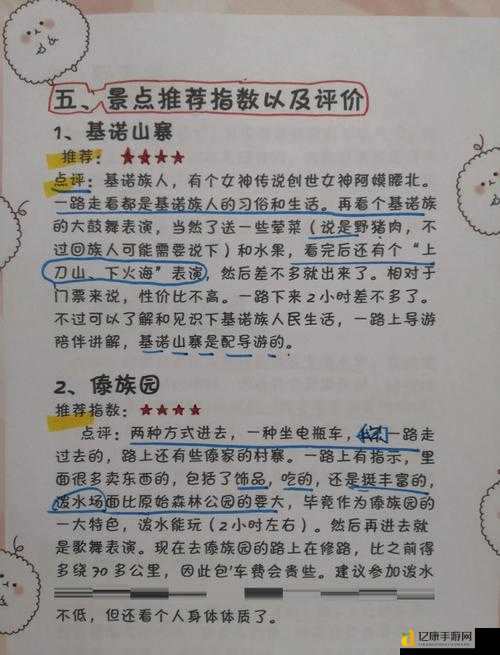 五、景点推荐指数以及评价
1、基诺山寨
推荐：★★★★
点评：基诺族人，有个女神传说创世女神阿嫫腰北。
一路走看都是基诺族人的习俗和生活。再看个基诺族
的大鼓舞表演，当然了送一些荤菜（说是野猪肉，不
过回族人可能需要说下）和水果，看完后还有个“上
刀山、下火海”表演，然后差不多就出来了。相对于
门票来说，性价比不高。一路下来2小时差不多了。
不过可以了解和见识下基诺族人民生活，一路上导游
陪伴讲解，基诺山寨是配导游的。
2、傣族园
推荐指数：★★★★
点评：两种方式进去，一种坐电瓶车，一路走
过去的，路上还有些傣家的村寨。一路上有指示，里
面很多卖东西的，包括了饰品，吃的，还是挺丰富的，
泼水场面比原始森林公园的要大，毕竟作为傣族园的
一大特色，泼水能玩（2小时左右）。然后再进去就
是歌舞表演。现在去傣族园的路上在修路，比之前得
多绕70多公里，因此包车费会贵些。建议参加泼水
不低，但还看个人身体体质了。
亿康手游网